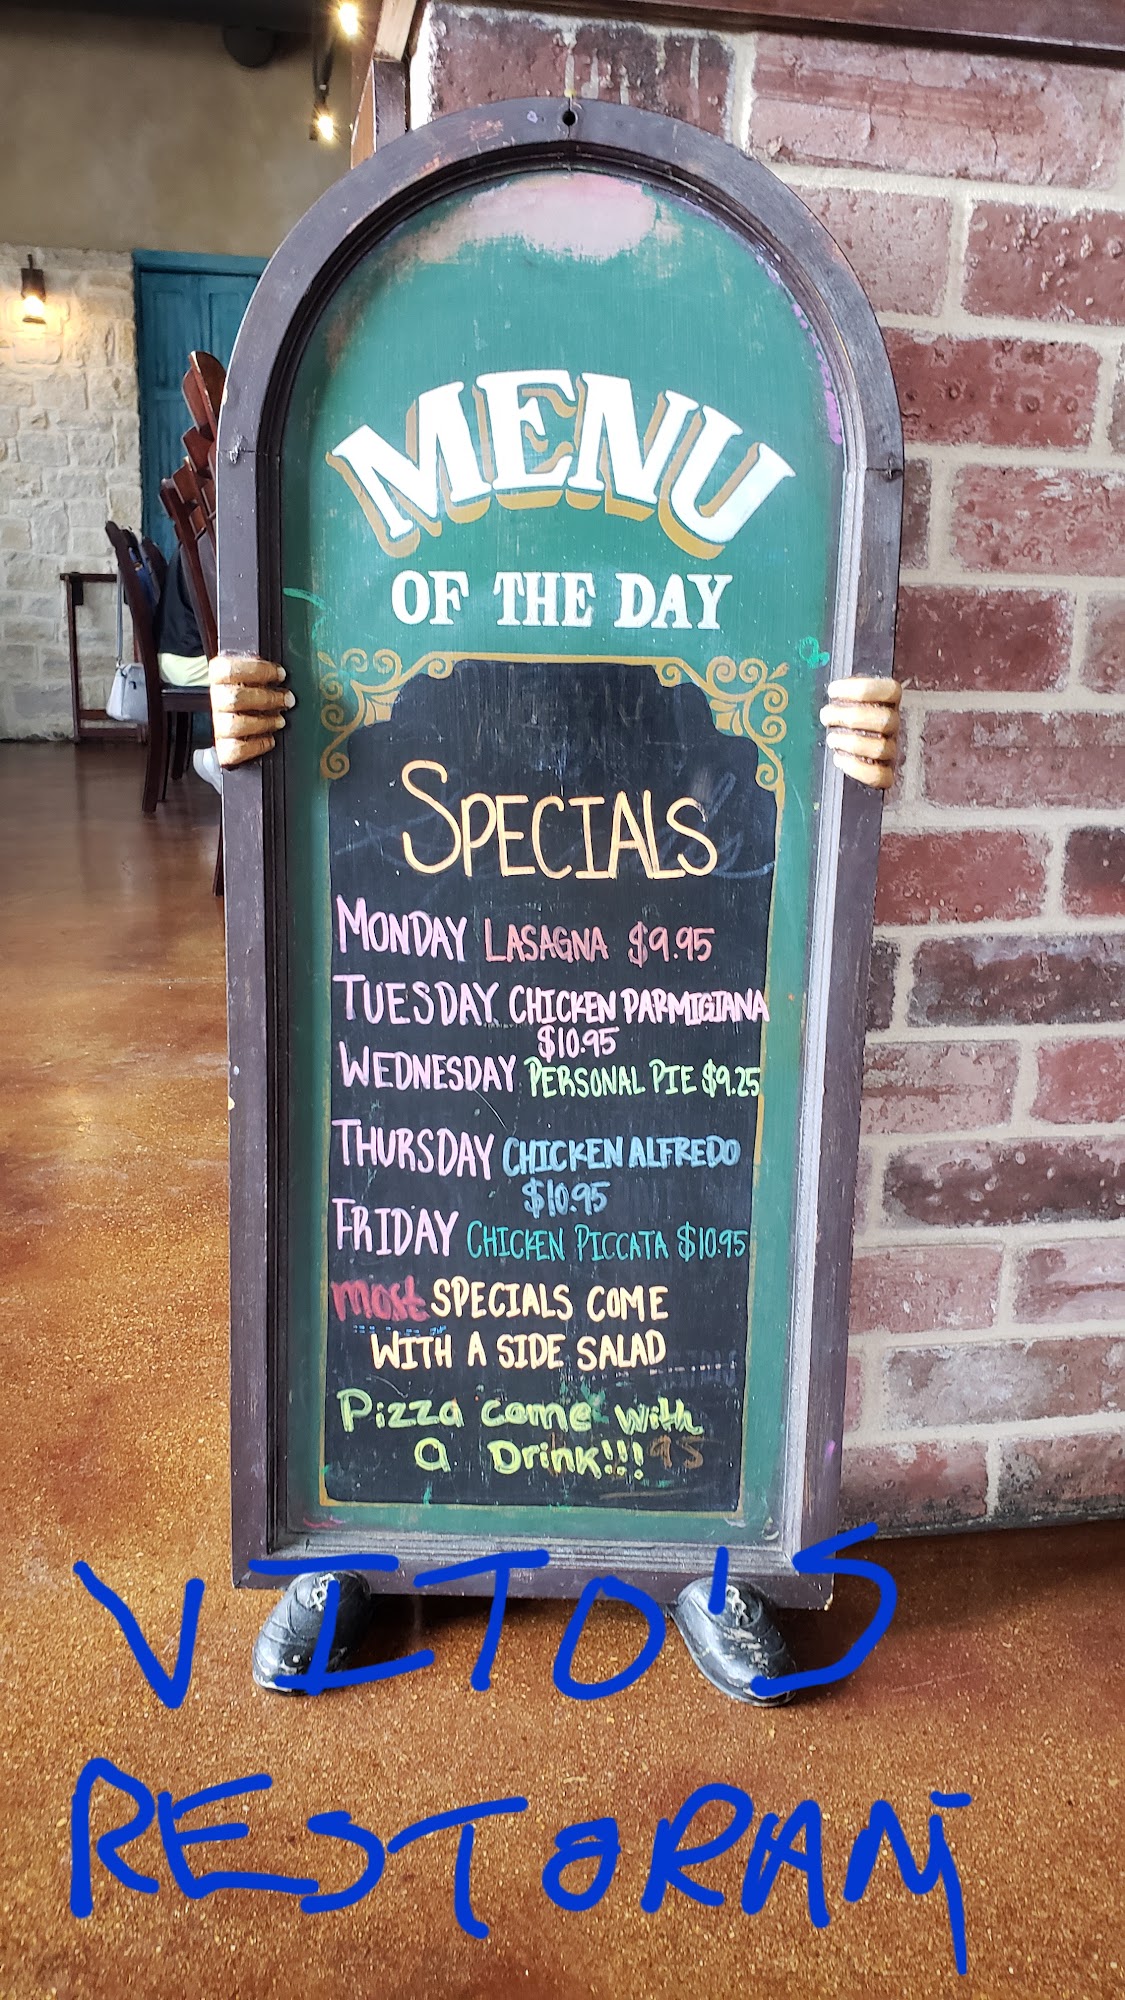 MENU
OF THE DAY
SPECIALS
MONDAY LASAGNA $9.95
TUESDAY CHICKEN PARMIGIANA
$10.95
WEDNESDAY PERSONAL PIE $9.25
THURSDAY CHICKEN ALFREDO
$10.95
FRIDAY CHICKEN PICCATA $10.95
most SPECIALS COME
WITH A SIDE SALAD
Pizza come with
a Drink!!! 95
VITO'S
RESTORANT